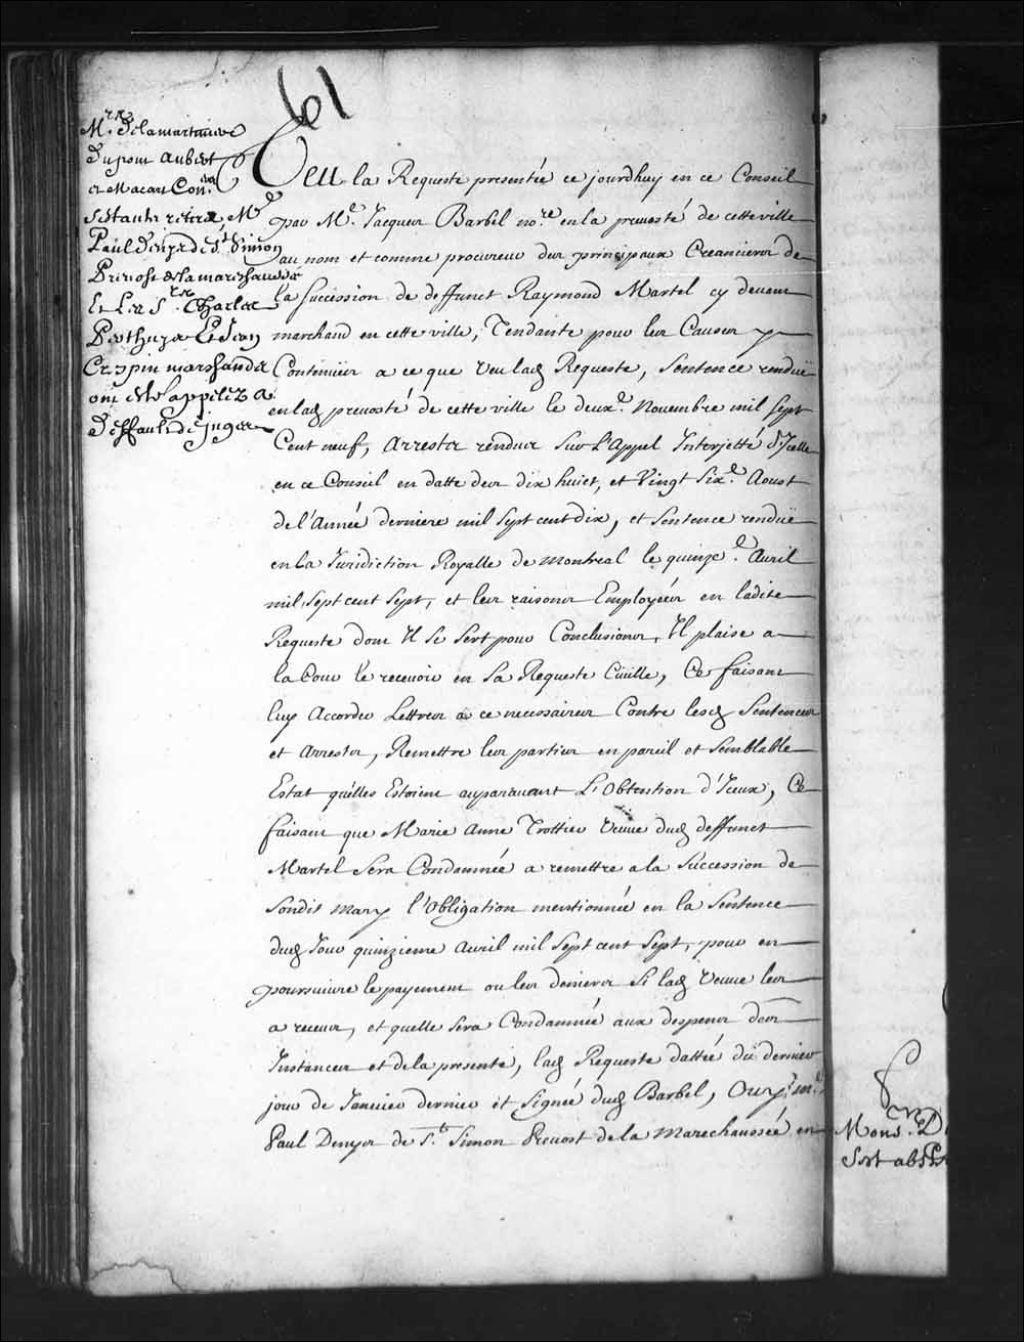 61
Mrs. delamartiniere
dupont aubert
et Macart Conrs.
Sestants retirez Me.
Paul denys de St. Simon
Prevost de la mareschaussée
Et Les Srs. Charles
Perthuys Et Jean
Crespin marchands
ont esté appellez a
deffault de juges
Veu la Requeste presentée ce jourdhuy en ce Conseil
par Me. Jacques Barbel nore. en la prevosté de cette ville
au nom et comme procureur des principaux Creanciers de
la Succession de deffunct Raymond Martel cy devant
marchand en cette ville, Tendante pour les Causes y
Contenües a ce que veu lade Requeste, Sentence rendüe
en lade prevosté de cette ville le deuxe. Novembre mil Sept
Cent neuf, Arrests rendus Sur L'Appel Interjetté d'Icelle
en ce Conseil en datte des dix huict, et Vingt Sixe. Aoust
de l'Année derniere mil Sept cent dix, et Sentence rendüe
en la Juridiction Royalle de Montreal le quinze. Avril
mil Sept cent Sept, et les raisons Employées en ladite
Requeste dont Il Se Sert pour Conclusions, Il plaise a
la Cour le recevoir en Sa Requeste Civille, Ce faisant
luy Accorder Lettres a ce necessaires Contre lesd Sentences
et Arrests, Remettre les parties en pareil et Semblable
Estat qu'elles Estoient auparavant L'Obtention d'Iceux, Ce
faisant que Marie Anne Trottier Veuve dud deffunct
Martel Sera Condamnée a remettre a la Succession de
Sondit mary l'Obligation mentionnée en la Sentence
dud Jour quinzieme Avril mil Sept cent Sept, pour en
poursuivre le payement ou les deniers Si lad Veuve les
a receus, et quelle Sera Condamnée aux despens des
Instances et de la presente, lad Requeste dattée du dernier
jour de Janvier dernier et Signée dud Barbel, Ouy Me.
Paul Denys de St. Simon Prevost de la Marechaussée en
Mons. D
Sest abs